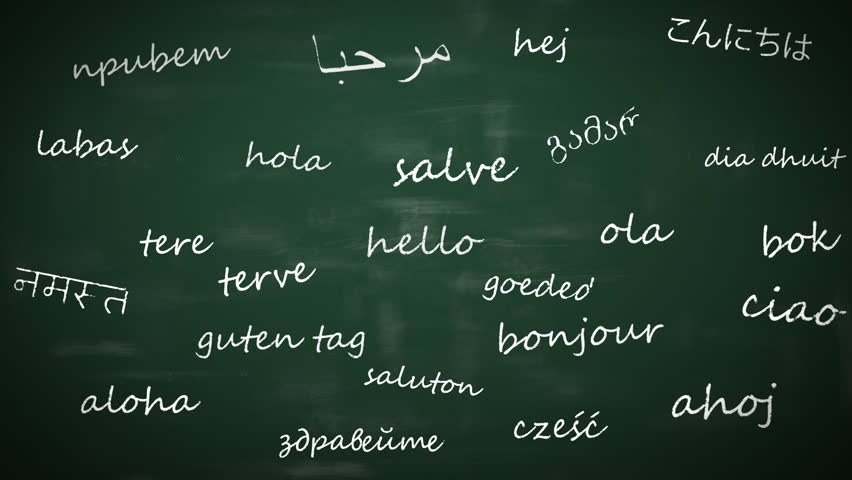 привет
مرحبا
hej
こんにちは
labas
hola
salve
გამარ
dia dhuit
tere
hello
ola
bok
नमस्त
terve
goeded
ciao
guten tag
bonjour
saluton
aloha
ahoj
здравейте
cześć